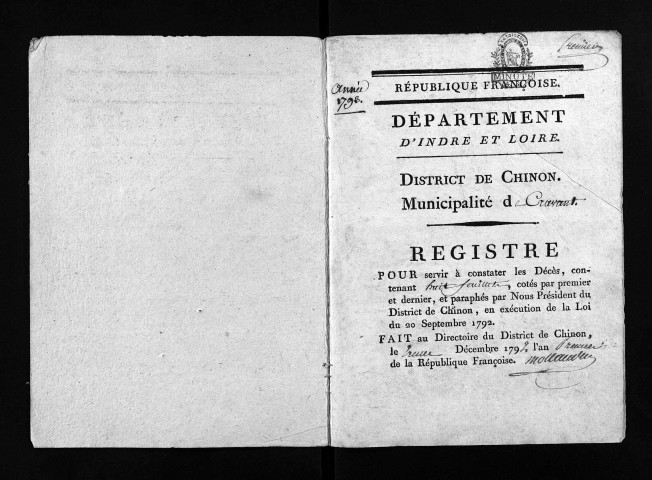 Premier
MINUTE
Année
1793.
RÉPUBLIQUE FRANÇOISE.
DÉPARTEMENT
D'INDRE ET LOIRE.
DISTRICT DE CHINON.
Municipalité de Cravant.
REGISTRE
POUR servir à constater les Décès, con-
tenant huit feuillets, cotés par premier
et dernier, et paraphés par Nous Président du
District de Chinon, en exécution de la Loi
du 20 Septembre 1792.
FAIT au Directoire du District de Chinon,
le Décembre 1792 l'an Premier
de la République Françoise.